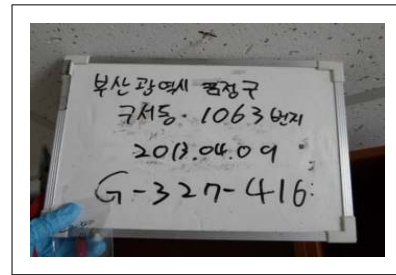 부산광역시 금정구
구서동. 1063번지
2013.04.09
G-327-416